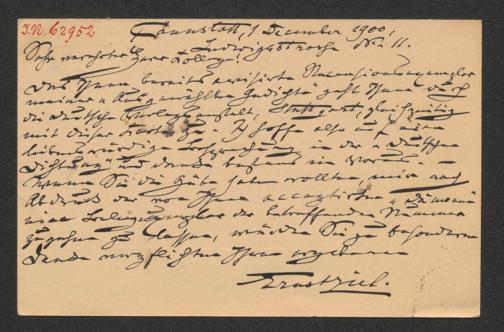 J.N. 62952
Cannstatt, 1 December 1900,
Ludwigstrasse No. 11.
Sehr verehrter Herr Kollege!
Das Ihnen bereits avisirte Recensionsexemplar
meiner „Ausgewählten Gedichte“ geht Ihnen durch
die Deutsche Verlagsanstalt, Stuttgart, gleichzeitig
mit dieser Karte zu. Ich hoffe also auf eine
liebenswürdige Besprechung in der „Deutschen
Dichtung“ und danke bestens im Voraus. —
Wenn Sie die Güte haben wollten, mir nach
Abdruck der von Ihnen acceptirten
mir Belegexemplar der betreffenden Nummer
zugehen zu lassen, würden Sie zu besonderem
Danke verpflichten Ihren ergebenen
Ernst Ziel.